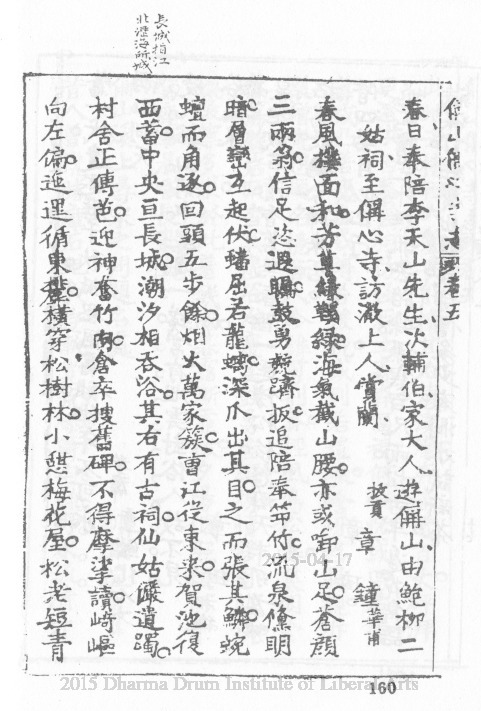 長城指江
北濼海所城
春日奉陪李天山先生次輔伯家大人遊僻山由鮑柳二
姑祠至僻心寺訪澈上人賞蘭 拔貢 章鐘華甫
春風撲面和芳草緣鞵綠海氣截山腰亦或啣山足蒼顏
三兩翁信足恣遐矚鼓勇競躋扳追陪奉笻竹流泉儵明
暗層巒互起伏蟠屈若龍螭深爪出其目之而張其鱗蜿
蟺而角逐回頭五步餘烟火萬家簇曹江從東來賀池復
西蓄中央亘長城潮汐相吞浴其右有古祠仙姑儼遺躅
村舍正傳芭迎神奮竹肉倉卒搜舊碑不得摩挲讀崎嶇
向左偏迤邐循東麓橫穿松樹林小憩梅花屋松老短青
卷五
160
2015-04-17
2015 Dharma Drum Institute of Liberal Arts